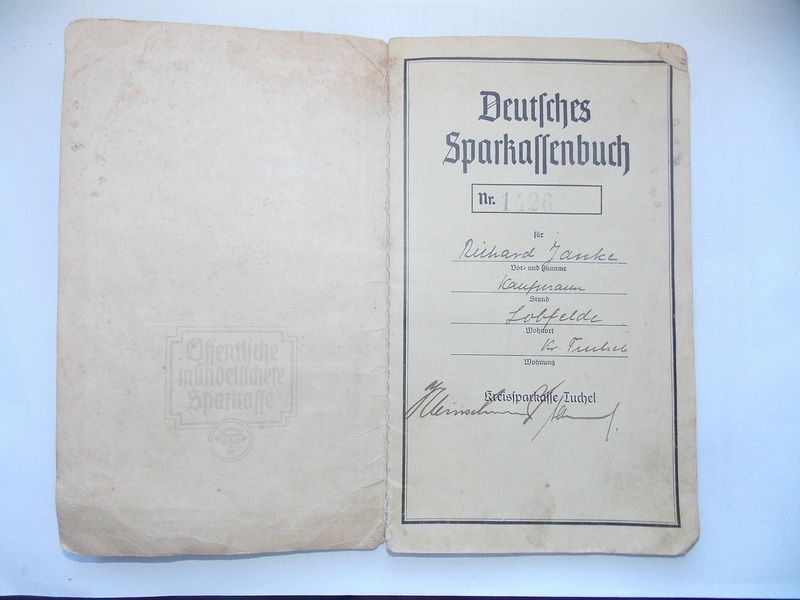 Öffentliche
mündelsichere
Sparkasse
Deutsches
Sparkassenbuch
Nr. 1426
für
Richard Janke
Vor- und Zuname
Kaufmann
Stand
Lobfelde
Wohnort
Kr Tuchel
Wohnung
Kreissparkasse Tuchel